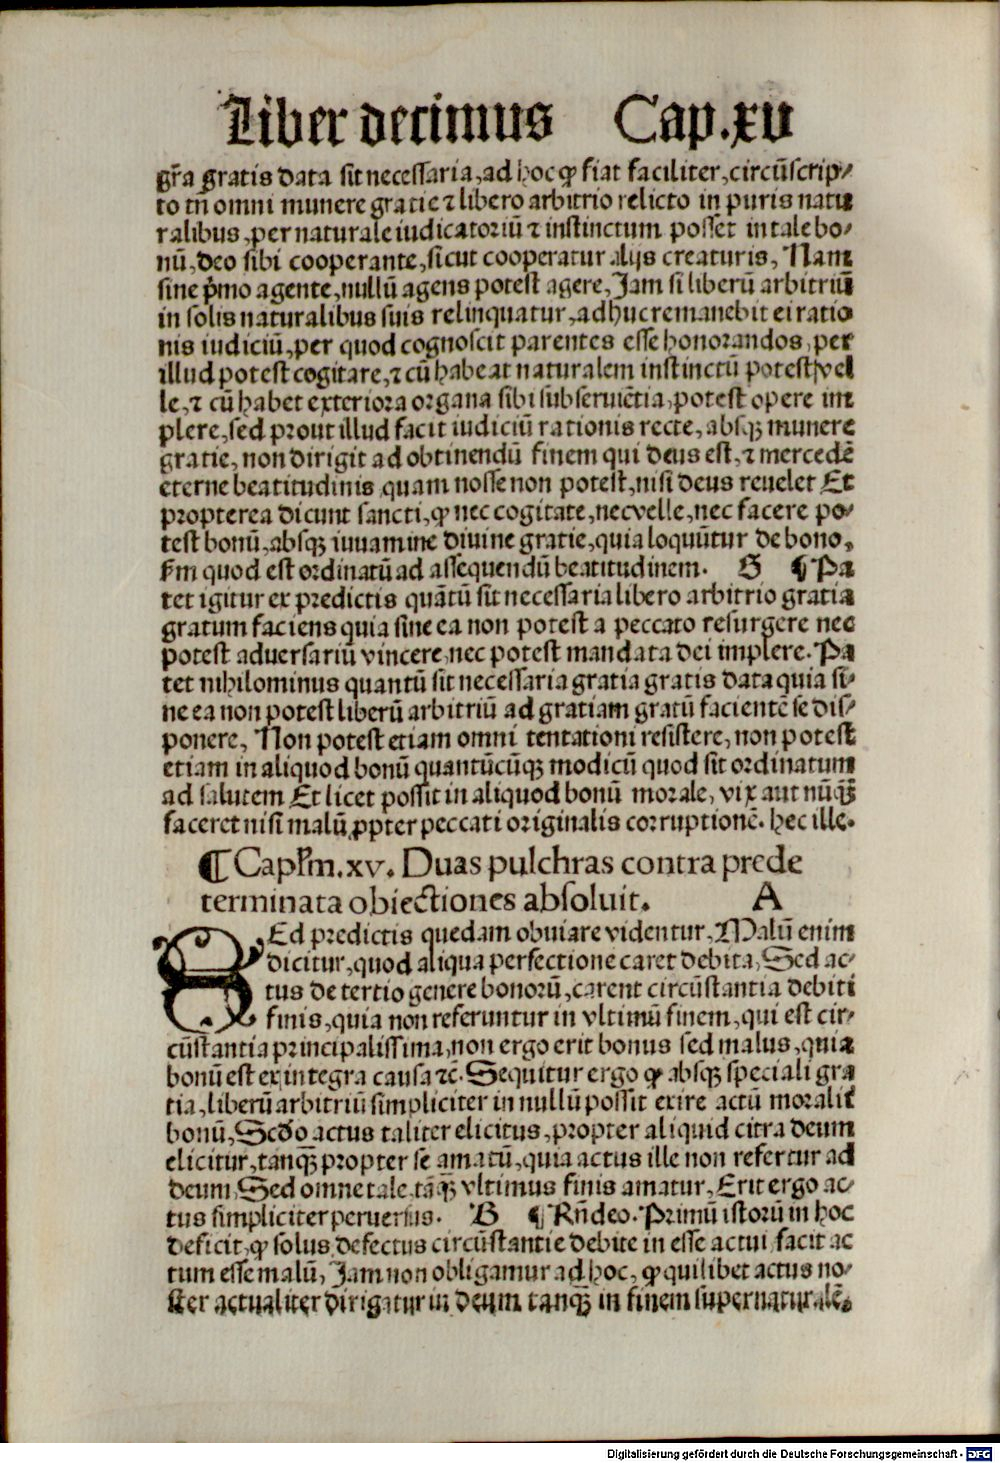 Liber decimus Cap.xv
gr̃a gratis data sit necessaria, ad hoc ꝙ fiat faciliter, circũscrip⸗
to tñ omni munere gratie ⁊ libero arbitrio relicto in puris natu
ralibus, per naturale iudicatoriũ ⁊ instinctum posset in tale bo⸗
nũ, deo sibi cooperante, sicut cooperatur alijs creaturis, Nam
sine p̃mo agente, nullũ agens potest agere, Jam si liberũ arbitriũ
in solis naturalibus suis relinquatur, adhuc remanebit ei ratio
nis iudiciũ, per quod cognoscit parentes esse honorandos, per
illud potest cogitare, ⁊ cũ habeat naturalem instinctũ potest vel
le, ⁊ cũ habet exteriora organa sibi subseruiẽtia, potest opere im
plere, sed prout illud facit iudiciũ rationis recte, absqꝫ munere
gratie, non dirigit ad obtinendũ finem qui deus est, ⁊ mercedẽ
eterne beatitudinis quam nosse non potest, nisi deus reuelet Et
propterea dicunt sancti, ꝙ nec cogitate, nec velle, nec facere po⸗
test bonũ, absqꝫ iuuamine diuine gratie, quia loquũtur de bono,
fm quod est ordinatũ ad assequendũ beatitudinem. G ¶ Pa
tet igitur ex predictis quãtũ sit necessaria libero arbitrio gratia
gratum faciens quia sine ea non potest a peccato resurgere nec
potest aduersariũ vincere, nec potest mandata dei implere. Pa
tet nihilominus quantũ sit necessaria gratia gratis data quia si⸗
ne ea non potest liberũ arbitriũ ad gratiam gratũ facientẽ se dis⸗
ponere, Non potest etiam omni tentationi resistere, non potest
etiam in aliquod bonũ quantũcũqꝫ modicũ quod sit ordinatum
ad salutem Et licet possit in aliquod bonũ morale, vix aut nũq̃ꝫ
faceret nisi malũ, ꝓpter peccati originalis corruptionẽ. hec ille.
¶ Cap̃m. xv. Duas pulchras contra prede
terminata obiectiones absoluit. A
SEd predictis quedam obuiare videntur, Malũ enim
dicitur, quod aliqua perfectione caret debita, Sed ac⸗
tus de tertio genere bonorũ, carent circũstantia debiti
finis, quia non referuntur in vltimũ finem, qui est cir⸗
cũstantia principalissima, non ergo erit bonus sed malus, quia
bonũ est ex integra causa ⁊c̃. Sequitur ergo ꝙ absqꝫ speciali gra
tia, liberũ arbitriũ simpliciter in nullũ possit exire actũ moralit̃
bonũ, Scðo actus taliter elicitus, propter aliquid citra deum
elicitur, tanq̃ꝫ propter se amatũ, quia actus ille non refertur ad
deum, Sed omne tale, tãq̃ꝫ vltimus finis amatur, Erit ergo ac⸗
tus simpliciter peruersus. B ¶ Rñdeo. Primũ istorũ in hoc
deficit, ꝙ solus defectus circũstantie debite in esse actui facit ac
tum esse malũ, Jam non obligamur ad hoc, ꝙ quilibet actus no⸗
ster actualiter dirigatur in deum tanq̃ꝫ in finem supernaturalẽ.
Digitalisierung gefördert durch die Deutsche Forschungsgemeinschaft - DFG